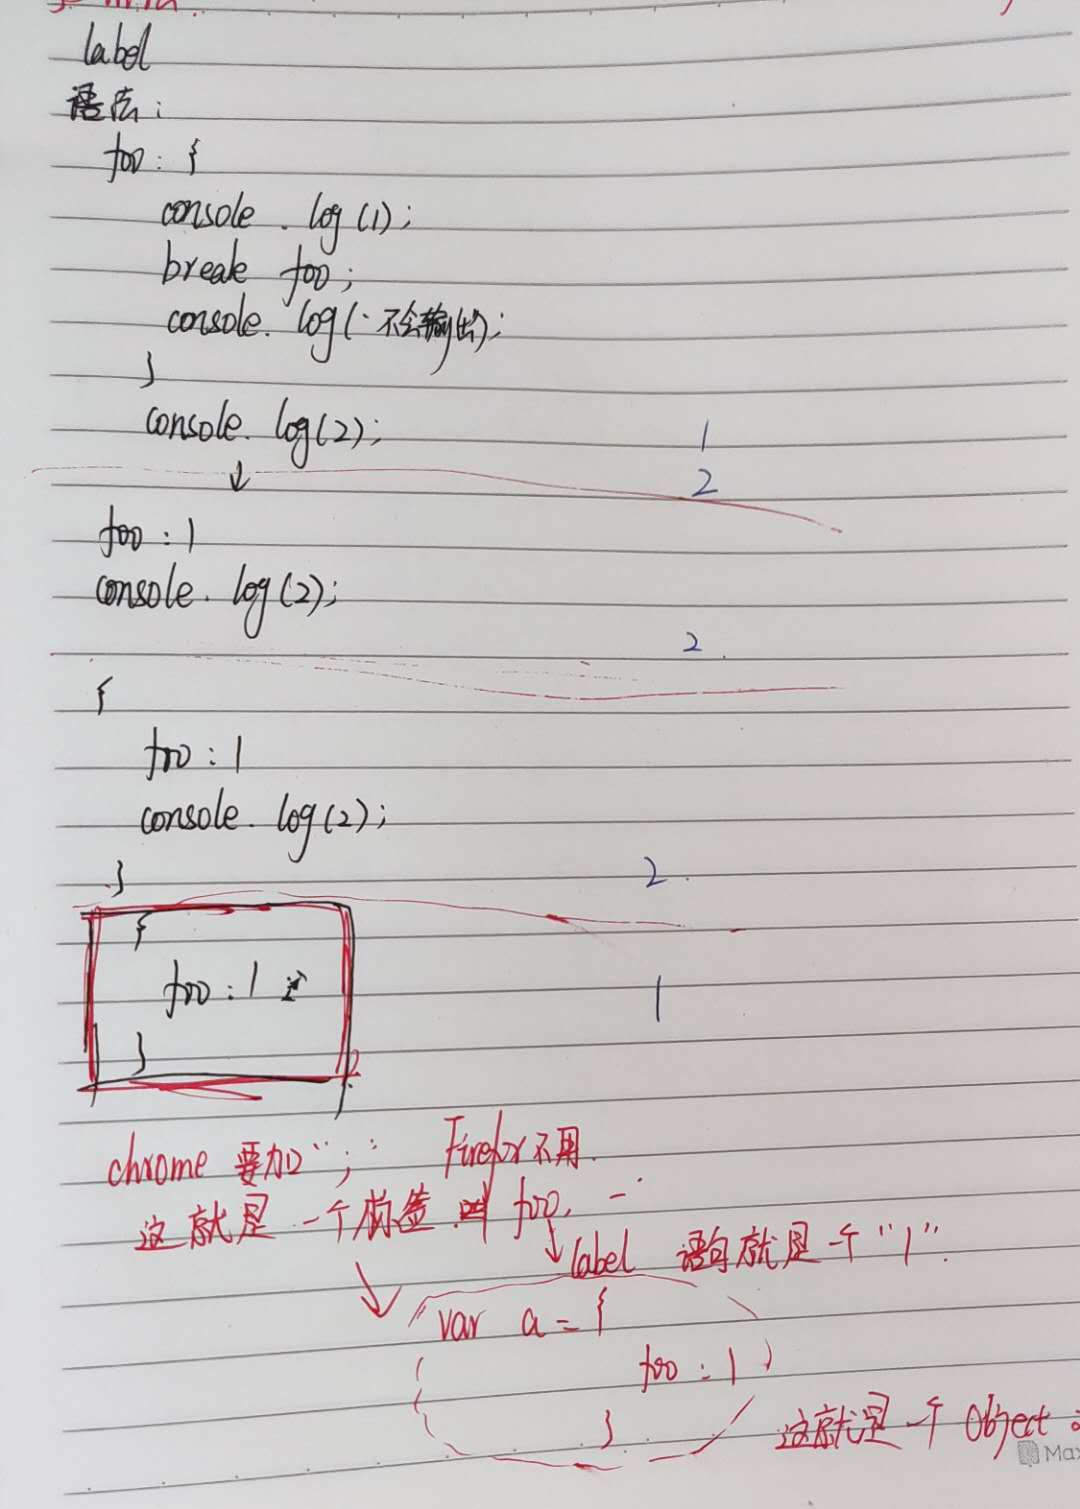 label
语法:
foo: {
console.log(1);
break foo;
console.log('不会输出);
}
console.log(2);
1
↓
2
foo:1
console.log(2);
2
{
foo:1
console.log(2);
}
2
{
foo:1
1
}
chrome 要加";" Firefox不用.
这就是一个标签 叫 foo,
label 语句就是个"1".
var a = {
foo:1
}
这就是一个 Object